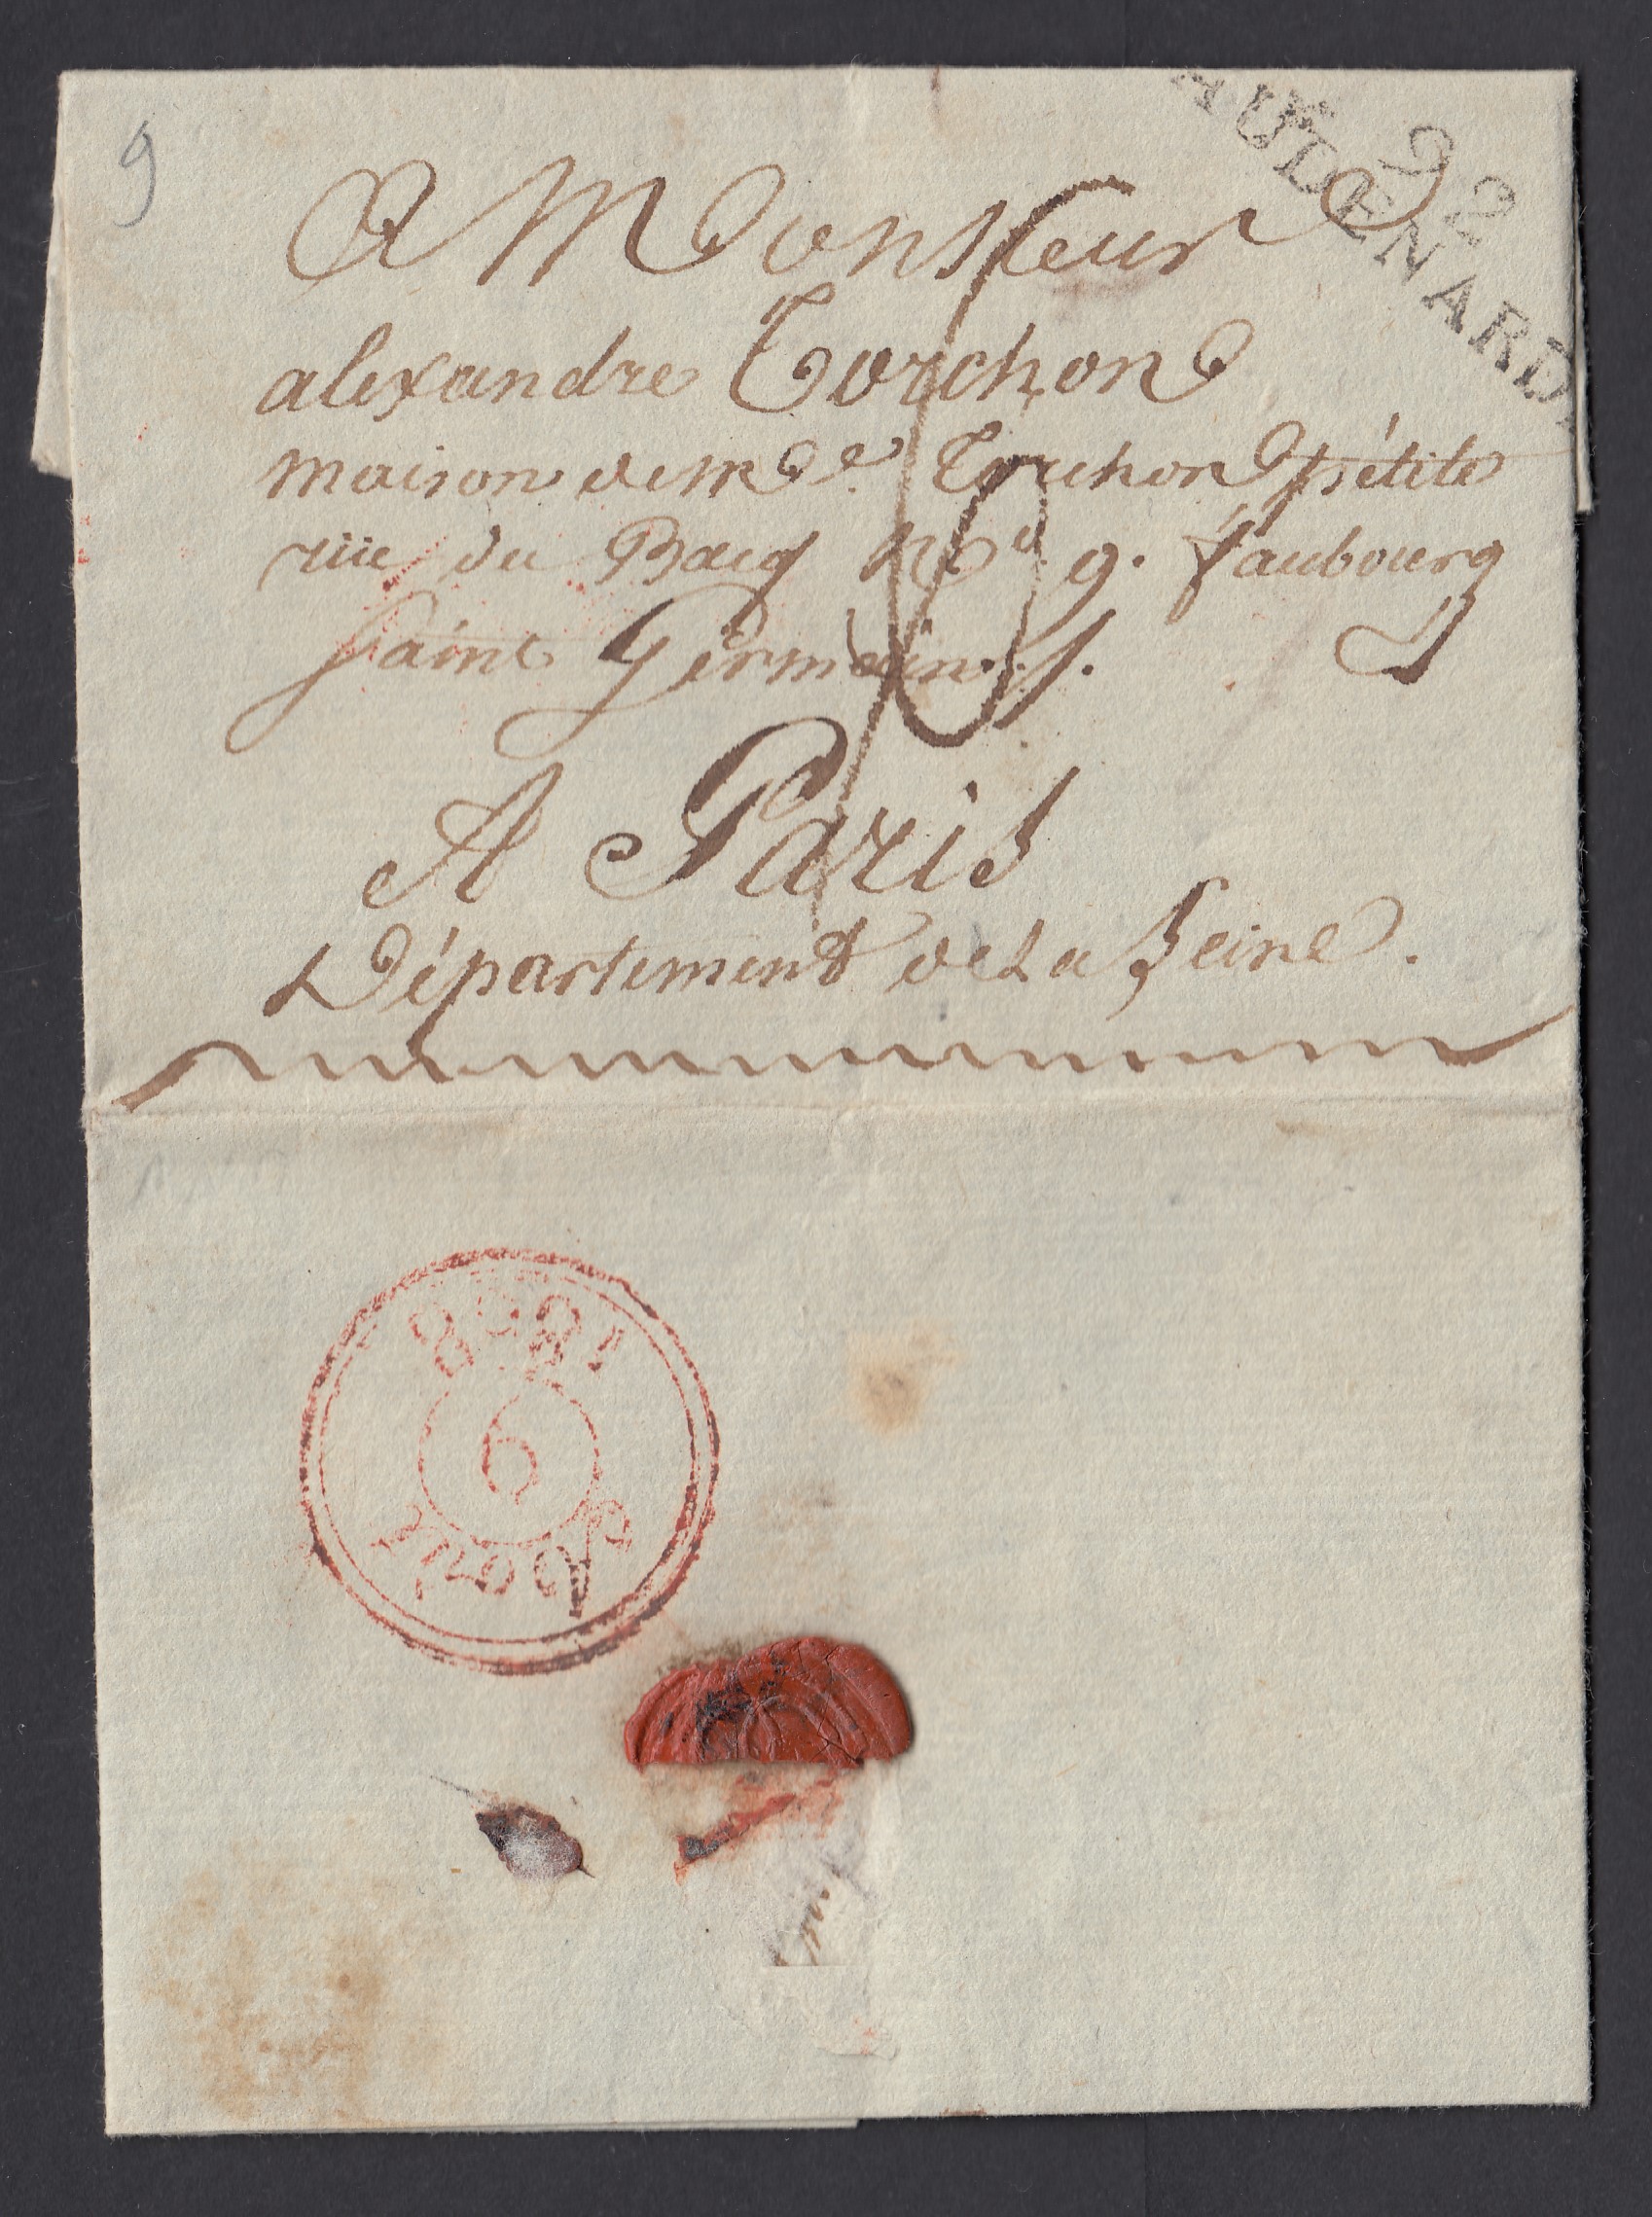 9
92
AUDENARDE
A Monsieur
alexandre Torchon
maison de Mde. Torchon pétite
rüe du Bacq No 9. faubourg
Saint Germain./.
A Paris
Département de La Seine.
6
1808